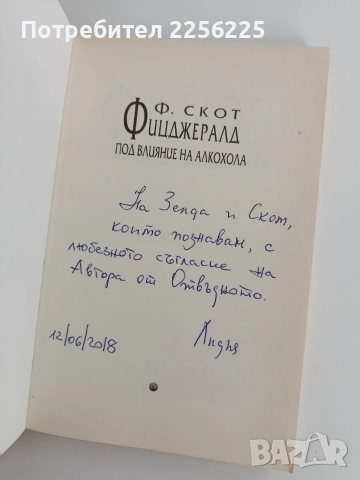 Потребител Потребител
Ф. СКОТ
ФИЦДЖЕРАЛД
ПОД ВЛИЯНИЕ НА АЛКОХОЛА
На Зелда и Скот,
които познавам, с
любезното съгласие на
Автора от Отвъдното.
12/06/2018
Лидия
BAZAR